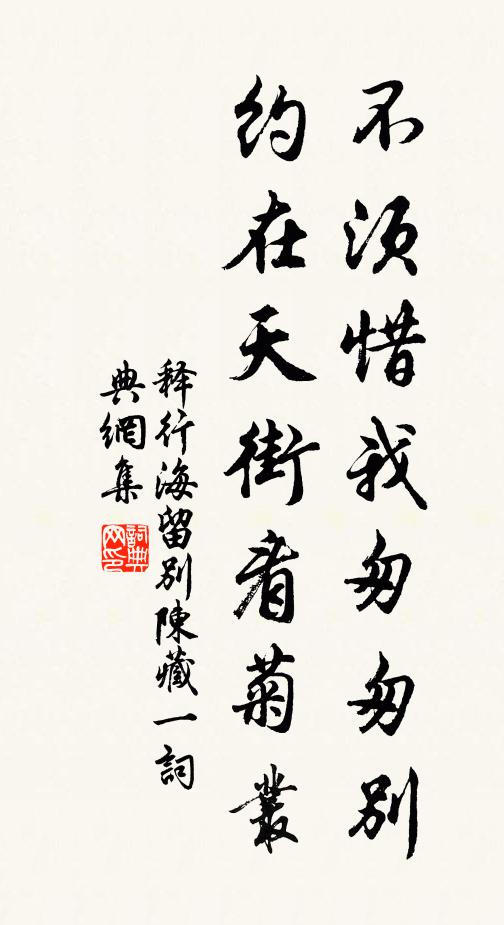 不須惜我匆匆別
約在天街看菊叢
释行海留別陳藏一詞
典網集
詞典
网印